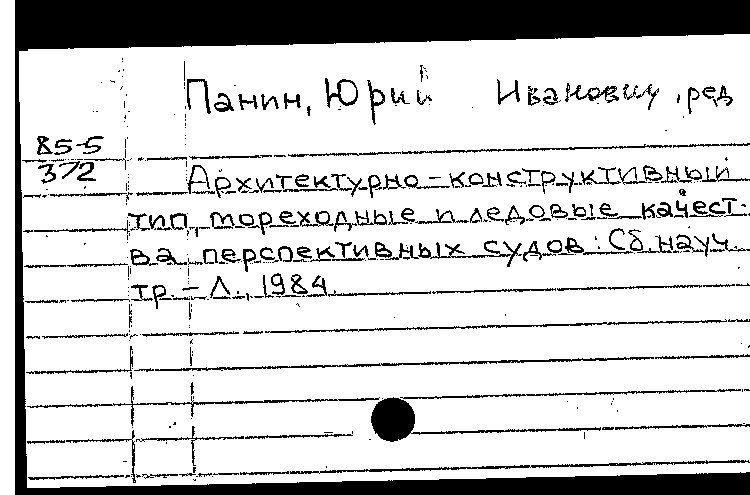 Панин, Юрий Иванович, ред
85-5
372
Архитектурно-конструктивный
тип, мореходные и ледовые качест-
ва перспективных судов: Сб. науч.
тр. - Л., 1984.